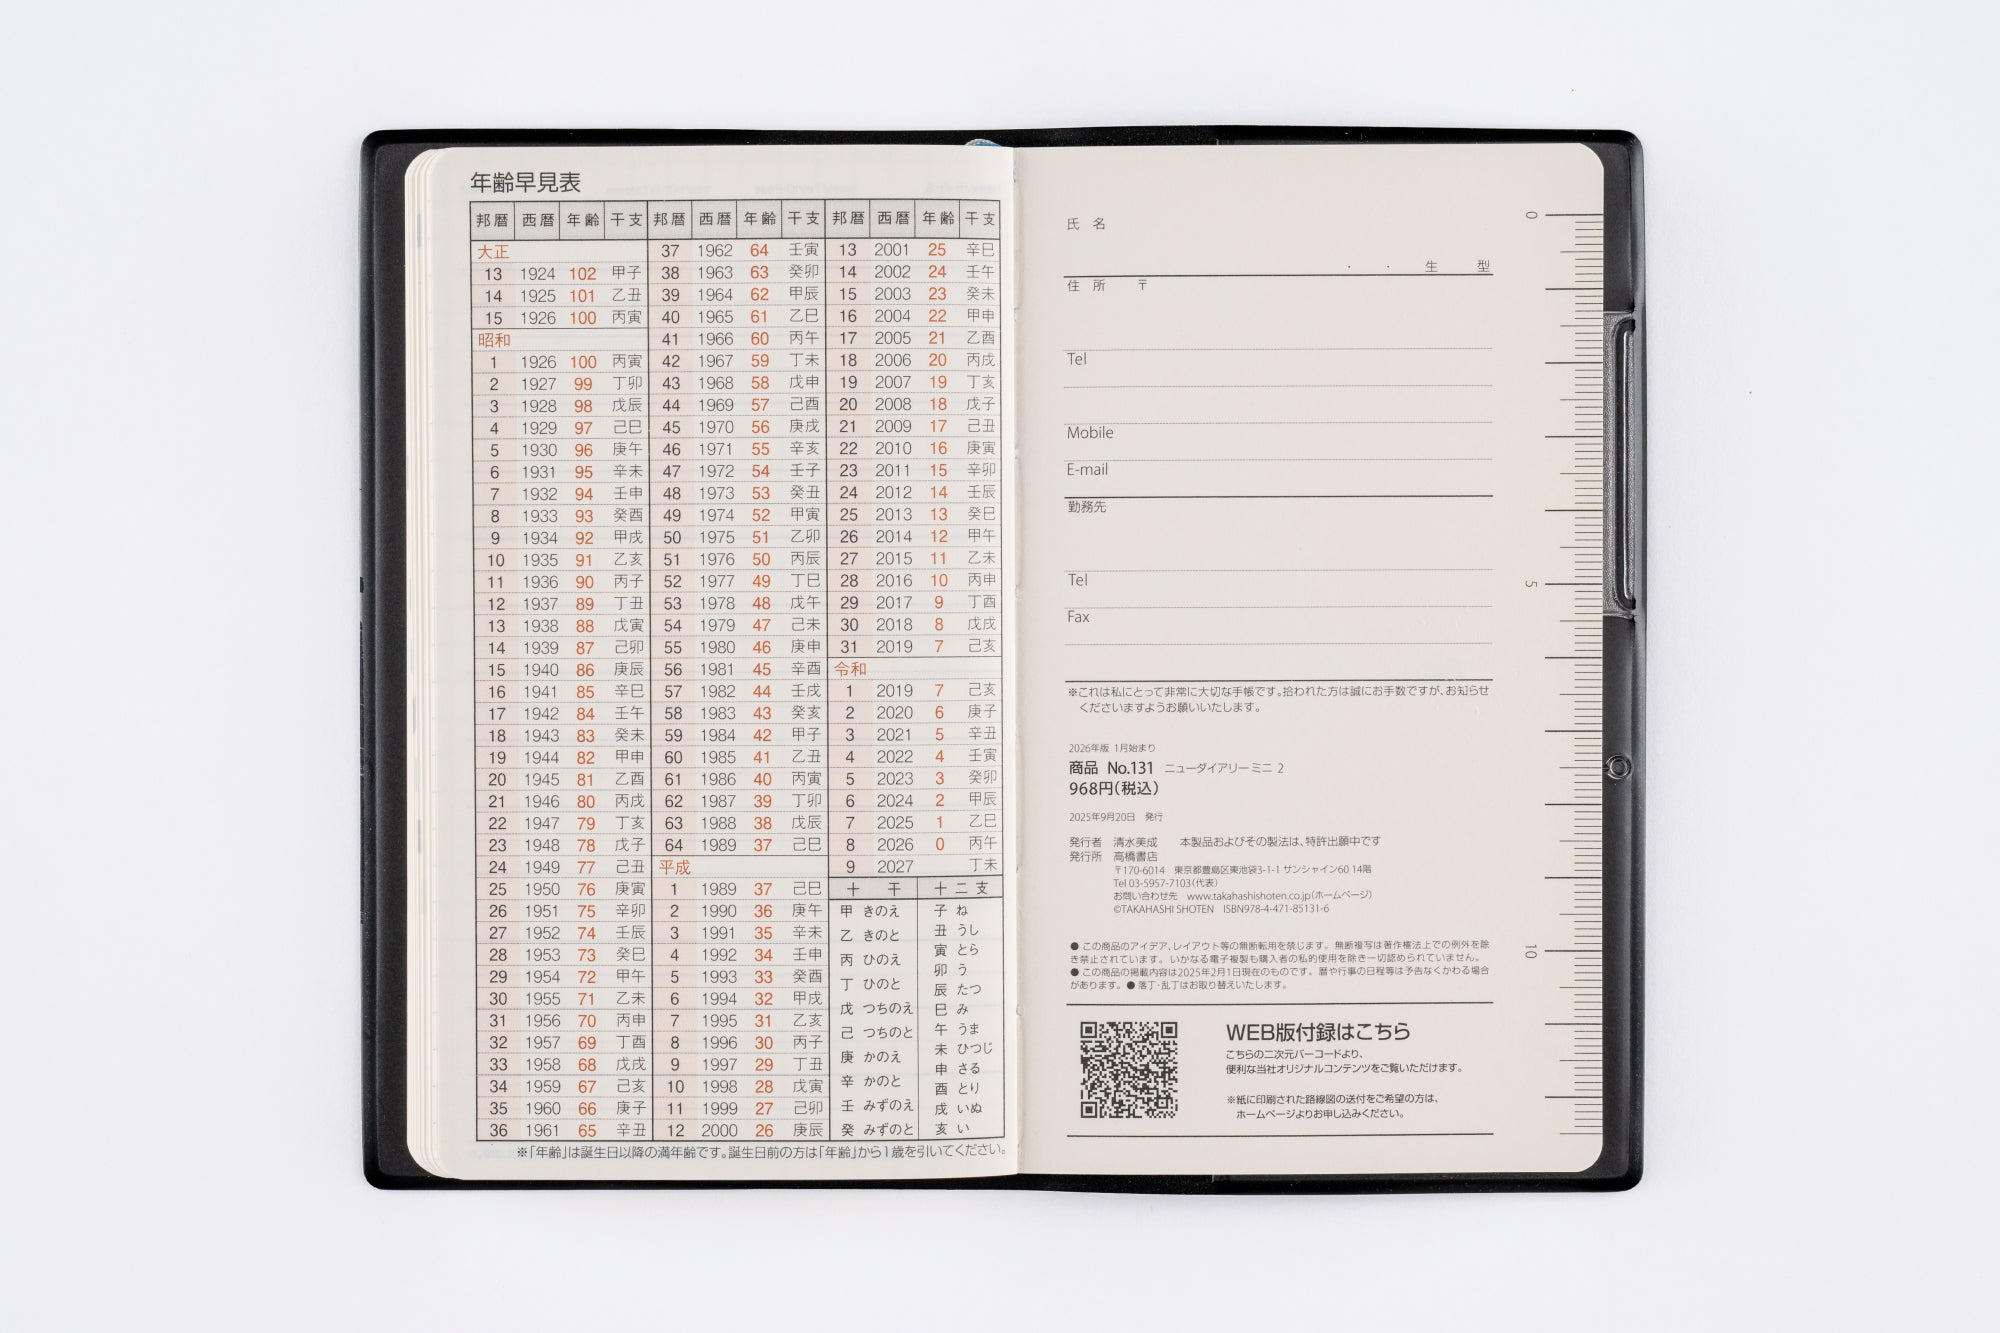 年齢早見表
邦暦 西暦 年齢 干支
大正
13 1924 102 甲子
14 1925 101 乙丑
15 1926 100 丙寅
昭和
1 1926 100 丙寅
2 1927 99 丁卯
3 1928 98 戊辰
4 1929 97 己巳
5 1930 96 庚午
6 1931 95 辛未
7 1932 94 壬申
8 1933 93 癸酉
9 1934 92 甲戌
10 1935 91 乙亥
11 1936 90 丙子
12 1937 89 丁丑
13 1938 88 戊寅
14 1939 87 己卯
15 1940 86 庚辰
16 1941 85 辛巳
17 1942 84 壬午
18 1943 83 癸未
19 1944 82 甲申
20 1945 81 乙酉
21 1946 80 丙戌
22 1947 79 丁亥
23 1948 78 戊子
24 1949 77 己丑
25 1950 76 庚寅
26 1951 75 辛卯
27 1952 74 壬辰
28 1953 73 癸巳
29 1954 72 甲午
30 1955 71 乙未
31 1956 70 丙申
32 1957 69 丁酉
33 1958 68 戊戌
34 1959 67 己亥
35 1960 66 庚子
36 1961 65 辛丑
邦暦 西暦 年齢 干支
37 1962 64 壬寅
38 1963 63 癸卯
39 1964 62 甲辰
40 1965 61 乙巳
41 1966 60 丙午
42 1967 59 丁未
43 1968 58 戊申
44 1969 57 己酉
45 1970 56 庚戌
46 1971 55 辛亥
47 1972 54 壬子
48 1973 53 癸丑
49 1974 52 甲寅
50 1975 51 乙卯
51 1976 50 丙辰
52 1977 49 丁巳
53 1978 48 戊午
54 1979 47 己未
55 1980 46 庚申
56 1981 45 辛酉
57 1982 44 壬戌
58 1983 43 癸亥
59 1984 42 甲子
60 1985 41 乙丑
61 1986 40 丙寅
62 1987 39 丁卯
63 1988 38 戊辰
64 1989 37 己巳
平成
1 1989 37 己巳
2 1990 36 庚午
3 1991 35 辛未
4 1992 34 壬申
5 1993 33 癸酉
6 1994 32 甲戌
7 1995 31 乙亥
8 1996 30 丙子
9 1997 29 丁丑
10 1998 28 戊寅
11 1999 27 己卯
12 2000 26 庚辰
邦暦 西暦 年齢 干支
13 2001 25 辛巳
14 2002 24 壬午
15 2003 23 癸未
16 2004 22 甲申
17 2005 21 乙酉
18 2006 20 丙戌
19 2007 19 丁亥
20 2008 18 戊子
21 2009 17 己丑
22 2010 16 庚寅
23 2011 15 辛卯
24 2012 14 壬辰
25 2013 13 癸巳
26 2014 12 甲午
27 2015 11 乙未
28 2016 10 丙申
29 2017 9 丁酉
30 2018 8 戊戌
31 2019 7 己亥
令和
1 2019 7 己亥
2 2020 6 庚子
3 2021 5 辛丑
4 2022 4 壬寅
5 2023 3 癸卯
6 2024 2 甲辰
7 2025 1 乙巳
8 2026 0 丙午
9 2027 丁未
十干
甲 きのえ
乙 きのと
丙 ひのえ
丁 ひのと
戊 つちのえ
己 つちのと
庚 かのえ
辛 かのと
壬 みずのえ
癸 みずのと
十二支
子 ね
丑 うし
寅 とら
卯 う
辰 たつ
巳 み
午 うま
未 ひつじ
申 さる
酉 とり
戌 いぬ
亥 い
※「年齢」は誕生日以降の満年齢です。誕生日前の方は「年齢」から1歳を引いてください。
氏 名
・ ・ 生 型
住 所 〒
Tel
Mobile
E-mail
勤務先
Tel
Fax
※これは私にとって非常に大切な手帳です。拾われた方は誠にお手数ですが、お知らせ
くださいますようお願いいたします。
2026年版 1月始まり
商品 No.131 ニューダイアリー ミニ 2
968円(税込)
2025年9月20日 発行
発行者 清水美成 本製品およびその製法は、特許出願中です
発行所 高橋書店
〒170-6014 東京都豊島区東池袋3-1-1 サンシャイン60 14階
Tel 03-5957-7103(代表)
お問い合わせ先 www.takahashishoten.co.jp(ホームページ)
©TAKAHASHI SHOTEN ISBN978-4-471-85131-6
● この商品のアイデア、レイアウト等の無断転用を禁じます。無断複写は著作権法上での例外を除
き禁止されています。いかなる電子複製も購入者の私的使用を除き一切認められていません。
● この商品の掲載内容は2025年2月1日現在のものです。暦や行事の日程等は予告なくかわる場合
があります。● 落丁・乱丁はお取り替えいたします。
WEB版付録はこちら
こちらの二次元バーコードより、
便利な当社オリジナルコンテンツをご覧いただけます。
※紙に印刷された路線図の送付をご希望の方は、
ホームページよりお申し込みください。
0
5
10